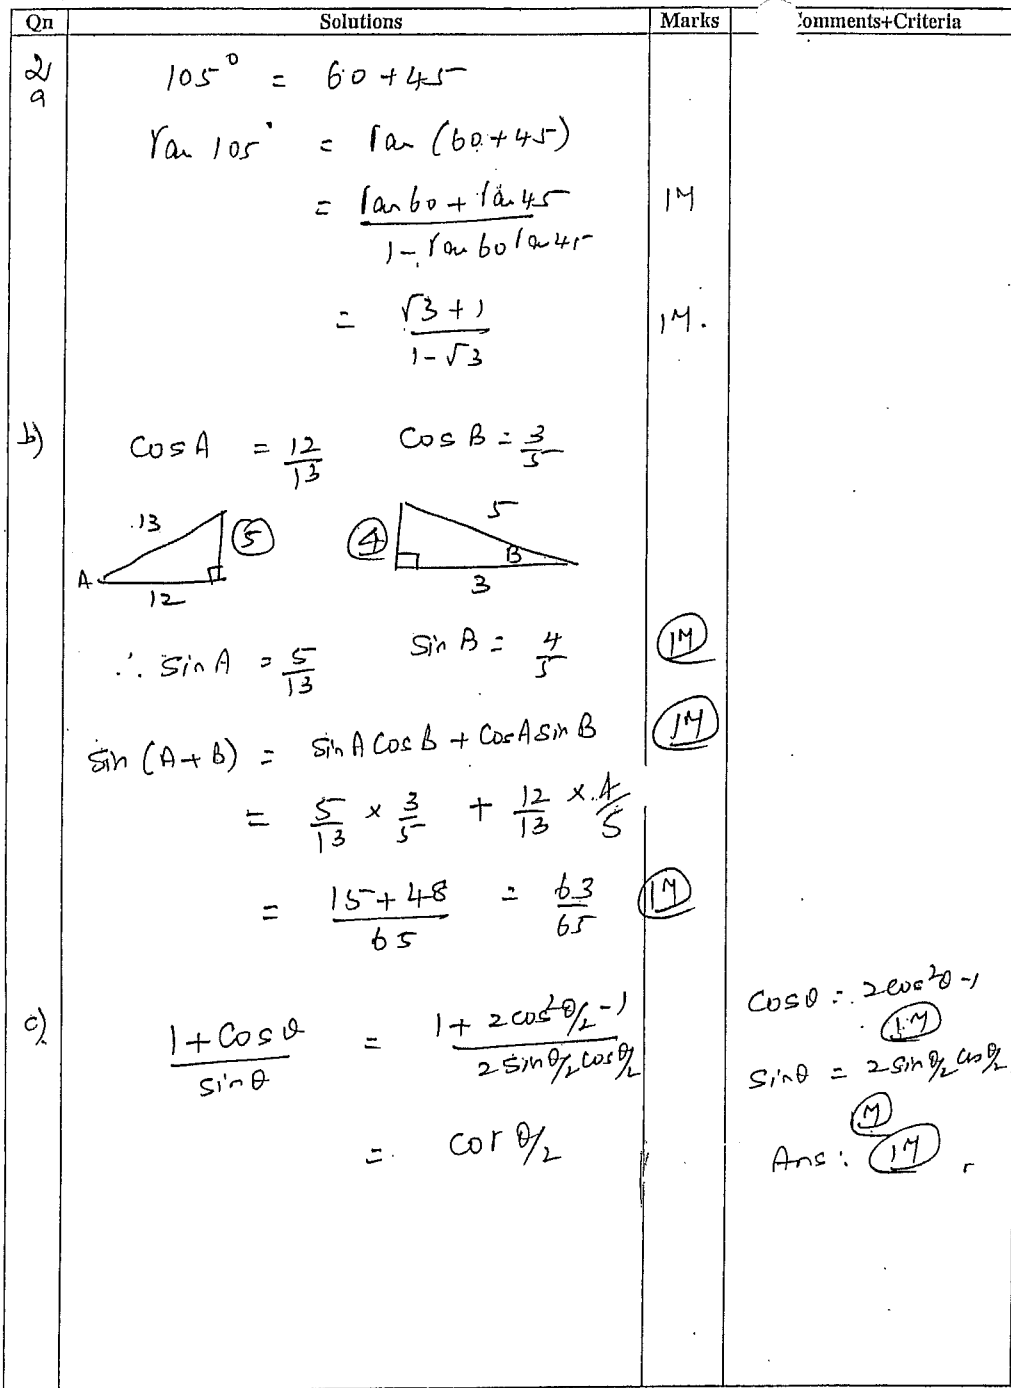 Qn Solutions Marks Comments+Criteria
2/a 105° = 60 + 45
Tan 105° = Tan (60 + 45)
= Tan 60 + Tan 45 / 1 - Tan 60 Tan 45 1M
= √3 + 1 / 1 - √3 1M.
b) Cos A = 12/13 Cos B = 3/5
13 5 A 12
4 5 B 3
∴ Sin A = 5/13 Sin B = 4/5 1M
Sin (A + B) = Sin A Cos B + Cos A Sin B 1M
= 5/13 × 3/5 + 12/13 × 4/5
= 15 + 48 / 65 = 63/65 1M
c) 1 + Cos θ / Sin θ = 1 + 2 cos² θ/2 - 1 / 2 Sin θ/2 cos θ/2
= cot θ/2
Cos θ = 2 cos² θ - 1
1M
Sin θ = 2 Sin θ/2 cos θ/2
M
Ans : 1M